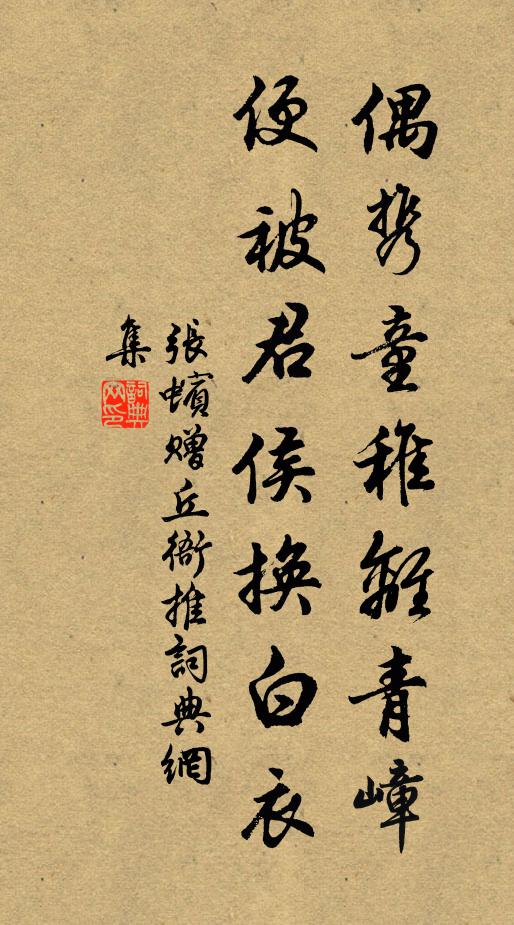 偶携童稚離青嶂
便被君侯換白衣
張蠙贈丘衙推詞典網
集
詞典網印